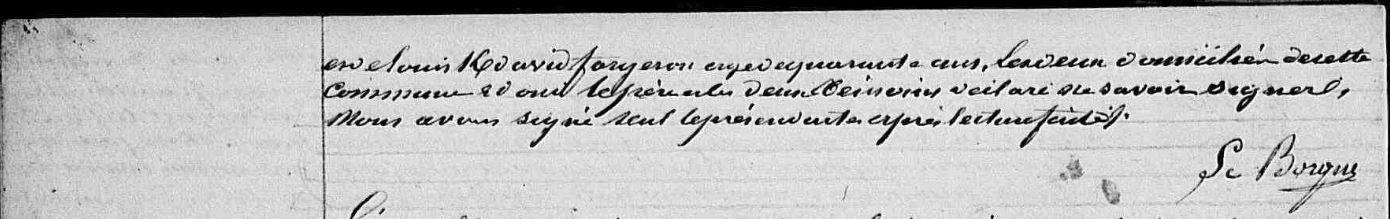 et de Louis Kdavid forgeron agé de quarante ans, les deux domiciliés de cette
Commune et ont le père et les deux témoins déclaré ne savoir signer,
Nous avons signé seul le présent acte après lecture faite.
Le Borgne